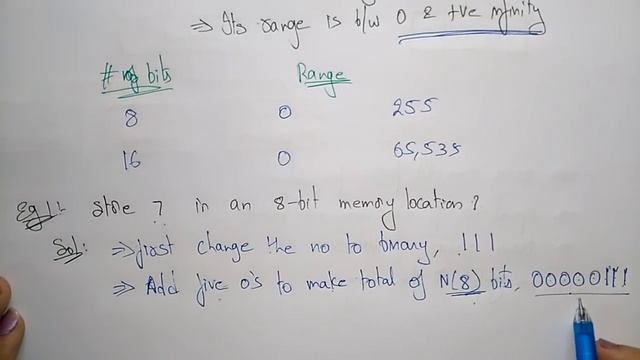 ⇒ Its range is b/w 0 & +ve infinity
# of bits Range
8 0 255
16 0 65,535
Eg 1:- Store 7 in an 8-bit memory location?
Sol: ⇒ first change the no to binary, 111
⇒ Add five 0's to make total of N(8) bits, 00000111